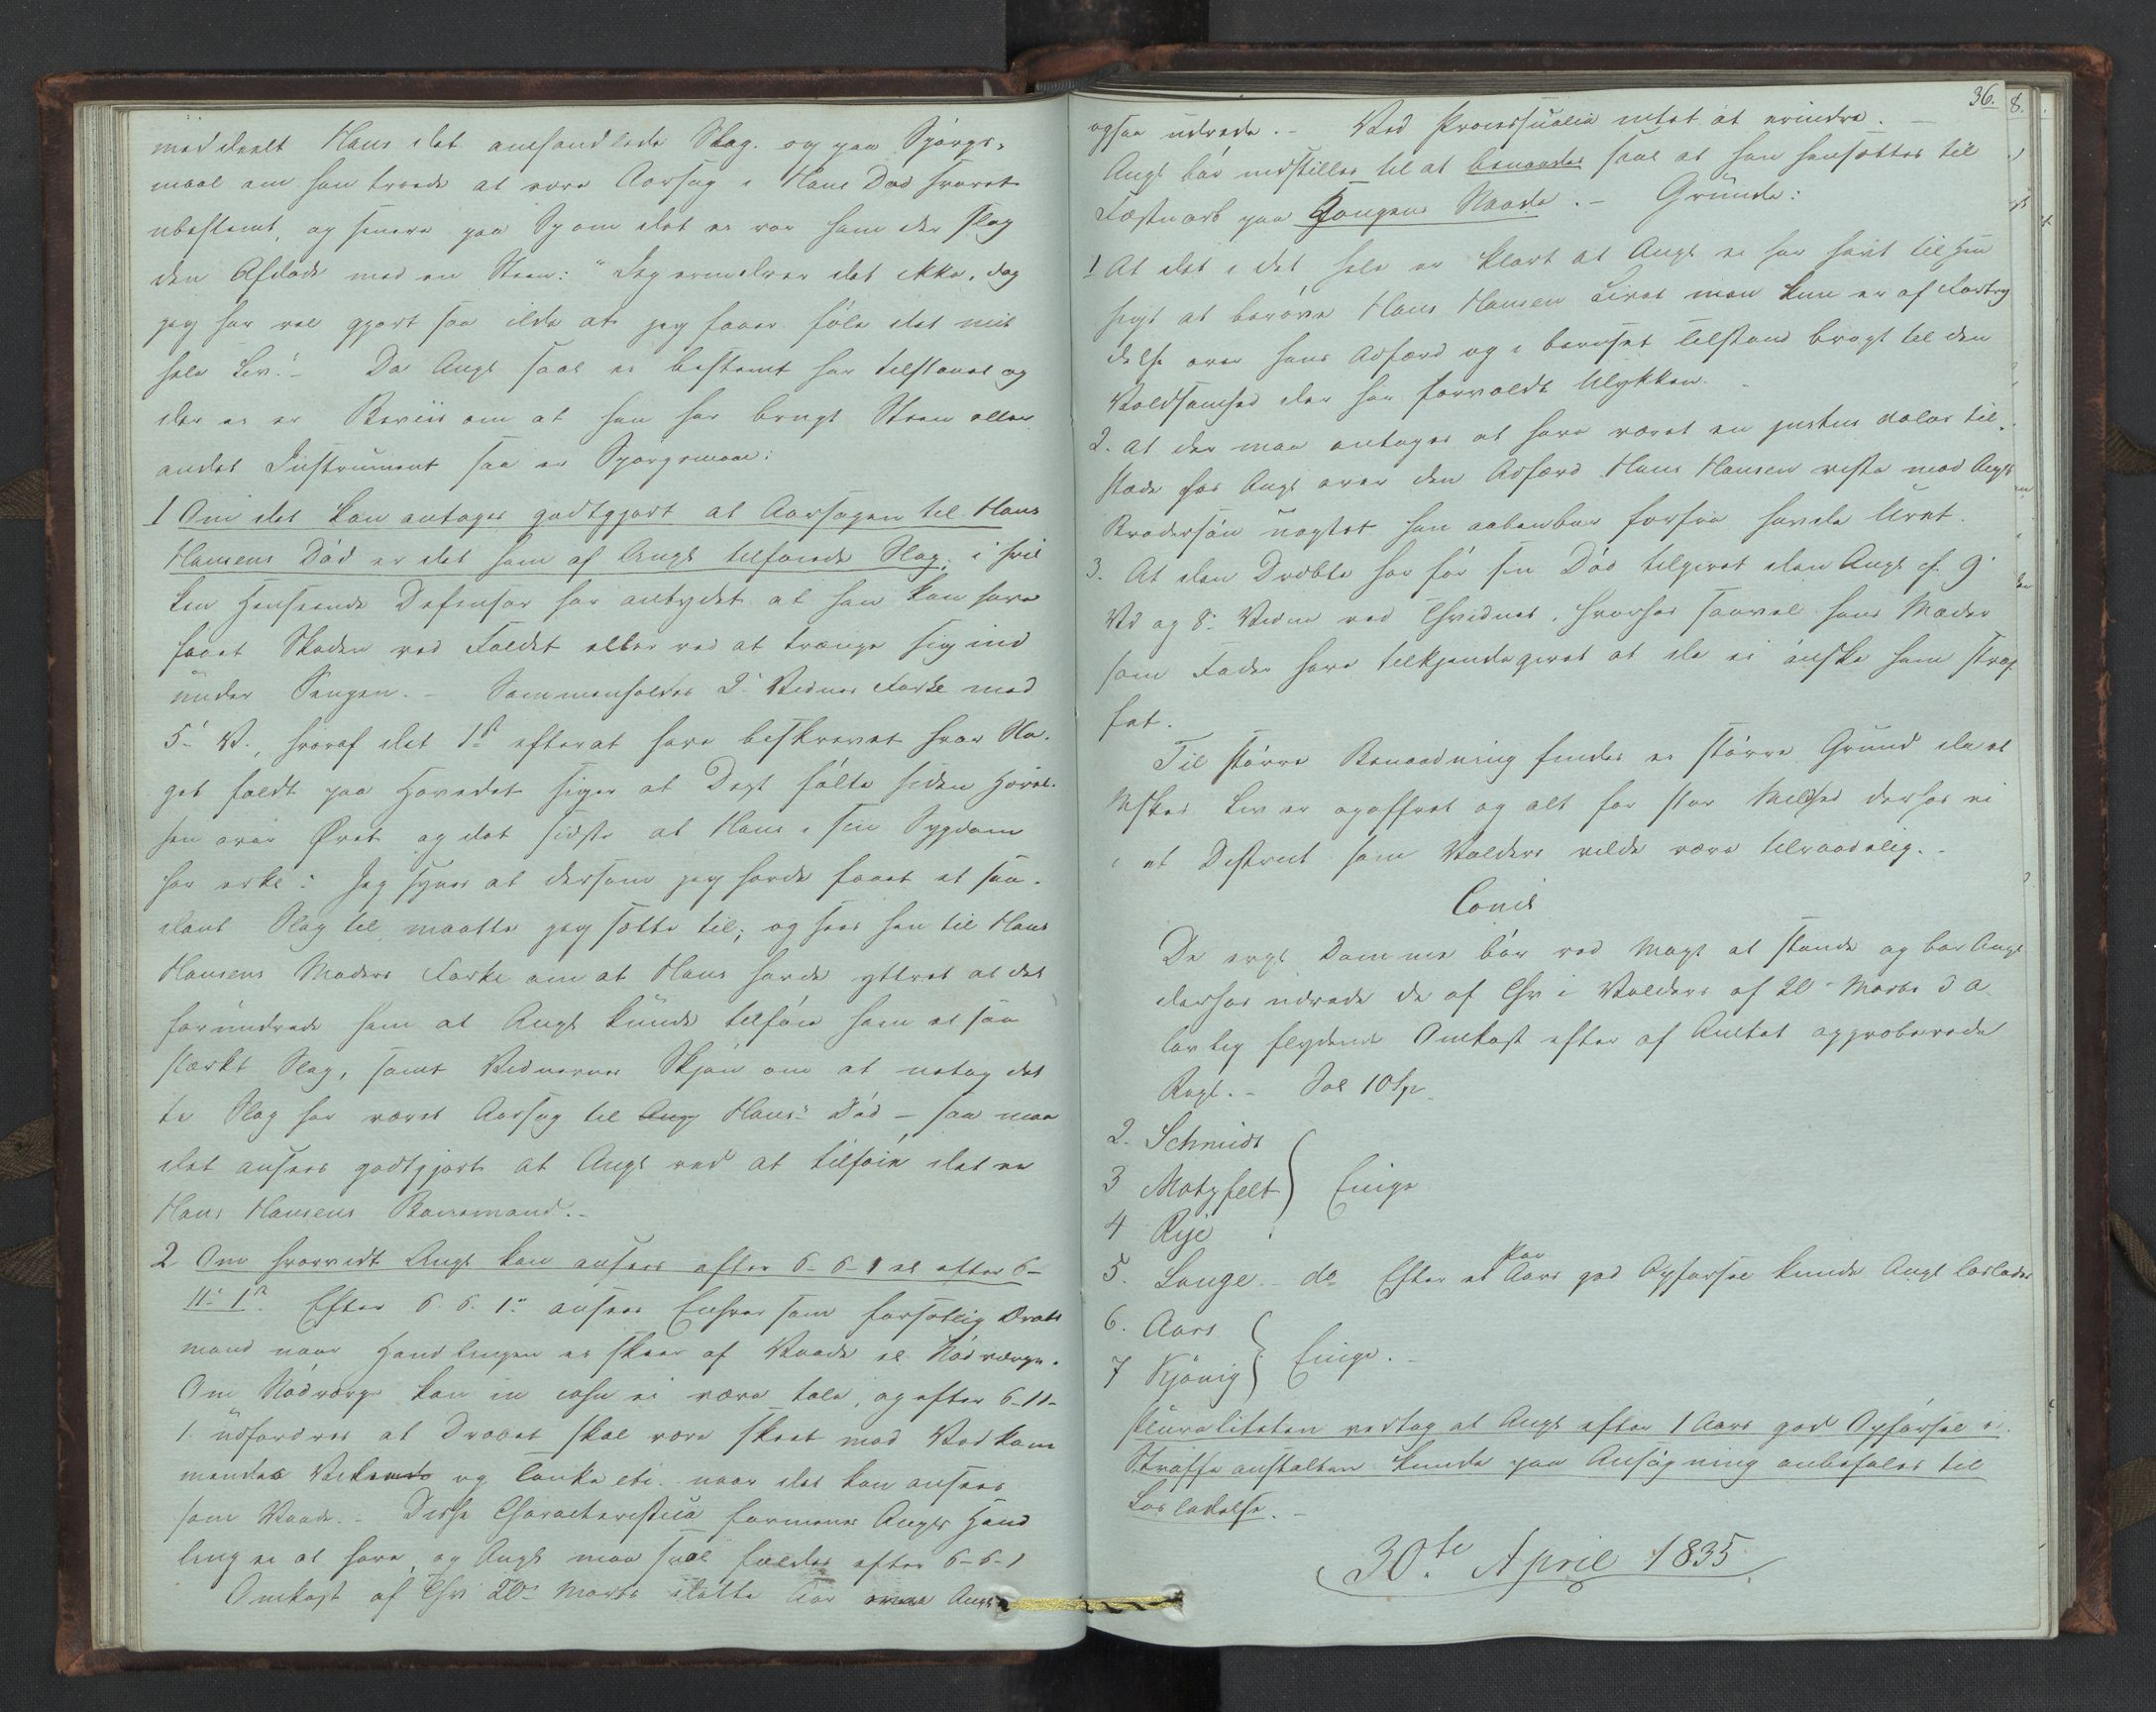 meddeelt Hans det omhandlede Slag. og paa Spørgs-
maal om han troede at være Aarsag i Hans Død svaret
ubestemt, og senere paa Sp om det ei var ham der slog
den Afdøde med en Steen: "Jeg erindrer det ikke, dog
jeg har vel gjort saa ilde at jeg faaer føle det mit
hele Liv". Da Angl saal ei bestemt har tilstaaet og
der ei er Beviis om at han har brugt Steen eller
andet Instrument saa er Spørgsmaal:
1 Om det kan antages godtgjort at Aarsagen til Hans
Hansens Død er det ham af Angl tilføiede Slag; i hvil
ken Henseende Defensor har antydet at han kan have
faaet Skaden ved Faldet eller ved at trænge sig ind
under Sengen. – Sammenholdes 2 Vidnes Forkl med
5 V., hvoraf det 1ste efterat have beskrevet hvor Sla-
get faldt paa Hovedet siger at Degl følte siden Hævel-
sen over Øret og det sidste at Hans i sin Sygdom
har erkl: Jeg synes at dersom jeg havde faaet et saa-
dant Slag til maatte jeg sætte til; og sees hen til Hans
Hansens Moders Forkl om at Hans havde yttret at det
forundrede ham at Angl kunde tilføie ham et saa
stærkt Slag, samt Vidnernes Skjøn om at netop det
te Slag har været Aarsag til Ang Hans' Død – saa maa
det ansees godtgjort at Angl ved at tilføie det er
Hans Hansens Banemand. –
2 Om hvorvidt Angl kan ansees efter 6-6-1 el efter 6-
11-1. Efter 6.6.1 ansees Enhver som forsætlig Drabs
mand naar Handlingen ei skeer af Vaade el Nødværge.
Om Nødværge kan in casu ei være tale, og efter 6-11-
1 udfordres at Drabet skal være skeet med Vedkom
mendes og Tanke etc. naar det kan ansees
som Vaade. – Disse Characteristica formenes Angls Hand
ling ei at have, og Angl maa saal fældes efter 6-6-1
Omkost af Chr 20 Marts dette Aar Angl
36.
ogsaa udrede. – Ved Processualia intet at erindre. –
Angl bør indstilles til at benaades saal at han hensættes til
Fæstnarb paa Kongens Naade. – Grunde:
1 At det i det hele er klart at Angl ei har havt til Hen
sigt at berøve Hans Hansen Livet men kun er af Fortry
delse over hans Adfærd og i beruset Tilstand bragt til den
Voldsomhed der har forvoldt Ulykken. –
2. at der maa antages at have været en justus dolor til-
stede hos Angl over den Adfærd Hans Hansen viste mod Angls
Brodersøn uagtet han aabenbar forfra havde Uret.
3. At den Dræbte har før sin Død tilgivet den Angl cf. 9
Vd og 8 Vidne ved Thvidnet, hvorhos saavel hans Moder
som Fader have tilkjendegivet at de ei ønske ham straf
fet.
Til større Benaadning findes ei større Grund da et
Mskes Liv er opoffret og alt for stor Mildhed derhos ei
i et District som Valders vilde være tilraadelig. –
Concl
De ergl Domme bør ved Magt at stande og bør Angl
derhos udrede de af Chr i Valders af 20 Marts d A
lovlig flydende Omkost efter af Amtet approberede
Regl. – Sal 10 Sp.
2. Schmidt
3 Motzfelt } Enige
4 Rye
5. Lange – do Efter et Par Aars god Opførsel kunde Angl løslades
6. Aars
7 Kjönig } Enige. –
Pluraliteten vedtog at Angl efter 1 Aars god Opførsel i
Straffeanstalten kunde paa Ansøgning anbefales til
Løsladelse. –
30te April 1835